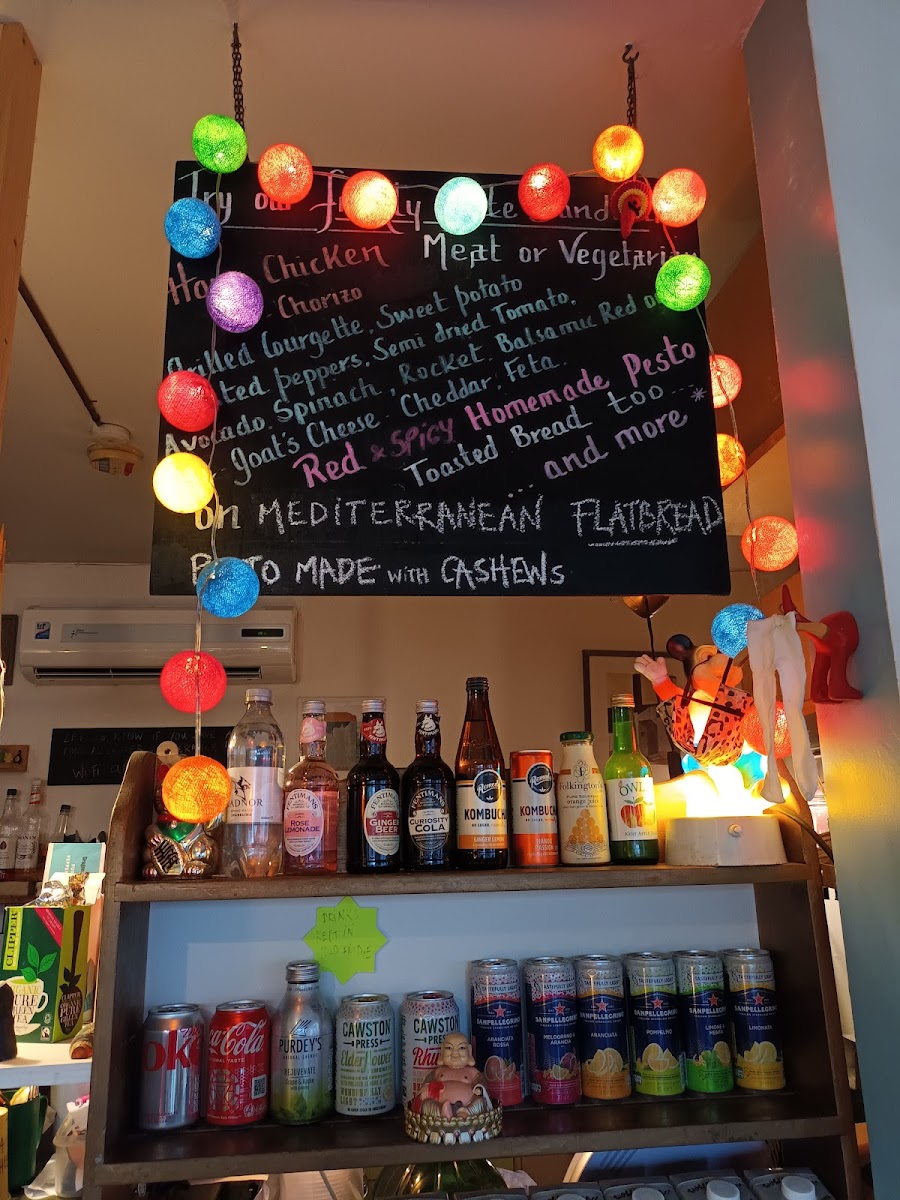 Try our
Chicken Meat or Vegetarian
Chorizo
Grilled Courgette, Sweet potato
peppers, Semi dried Tomato,
Avocado, Spinach, Rocket, Balsamic Red
Goat's Cheese Cheddar, Feta.
Red & Spicy Homemade Pesto
Toasted Bread too...*
...and more
on MEDITERRANEAN FLATBREAD
MADE WITH CASHEWS
WiFi
FENTIMANS
ROSE
LEMONADE
FENTIMANS
GINGER
BEER
FENTIMANS
CURIOSITY
COLA
Remedy
KOMBUCHA
Remedy
KOMBUCHA
Folkington's
orange juice
OWLET
DRINKS
KEPT IN
FRIDGE
CLIPPER
PURE
GREEN
TEA
CLIPPER
Coke
Coca-Cola
ORIGINAL TASTE
PURDEY'S
REJUVENATE
CAWSTON
PRESS
Elderflower
CAWSTON
PRESS
Rhu
SANPELLEGRINO
ARANCIATA
ROSSA
SANPELLEGRINO
MELOGRANO &
ARANCIA
SANPELLEGRINO
ARANCIATA
SANPELLEGRINO
POMPELMO
SANPELLEGRINO
LIMONE &
SANPELLEGRINO
LIMONATA